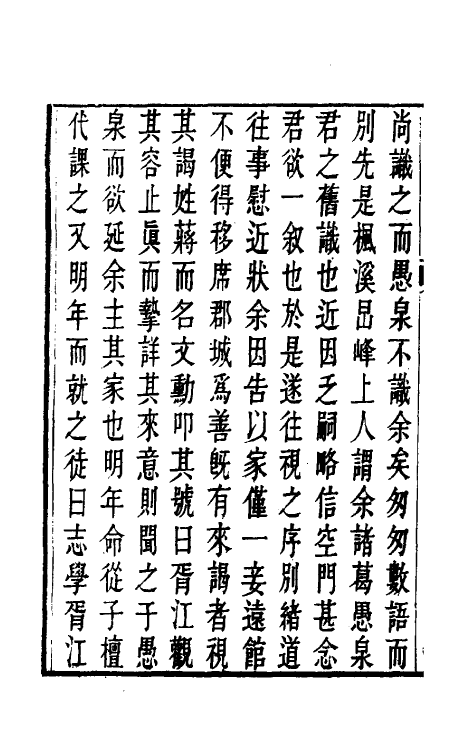 尚識之而愚泉不識余矣匆匆數語而
別先是楓溪嵒峰上人謂余諸葛愚泉
君之舊識也近因乏嗣略信空門甚念
君欲一叙也於是遂往視之序別緒道
往事慰近狀余因告以家僅一妾遠館
不便得移席郡城爲善旣有來謁者視
其謁姓蔣而名文勳叩其號曰胥江觀
其容止眞而摯詳其來意則聞之于愚
泉而欲延余主其家也明年命從子檀
代課之又明年而就之徒曰志學胥江